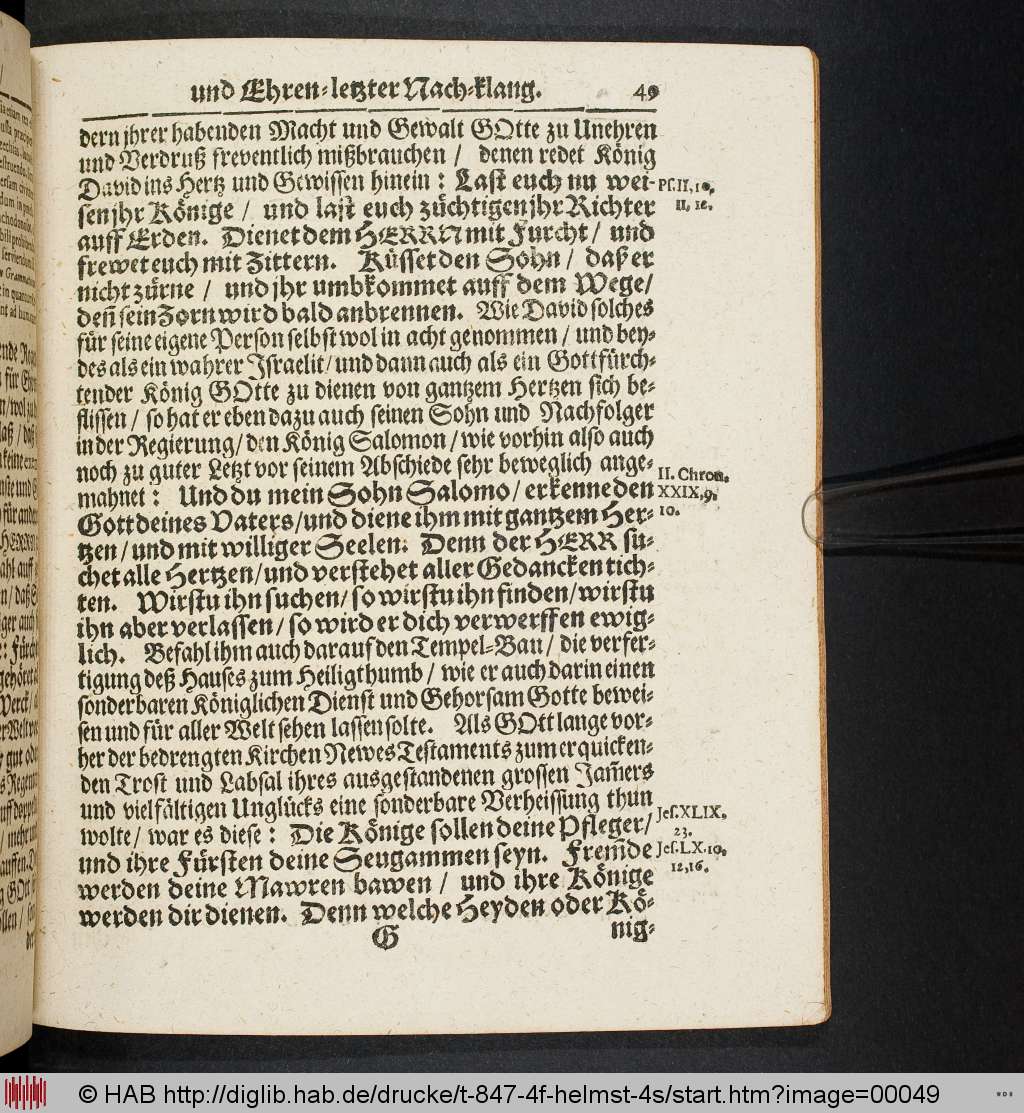 und Ehren-letzter Nach-klang. 49
dern jhrer habenden Macht und Gewalt GOtte zu Unehren
und Verdruß freventlich mißbrauchen / denen redet König
David ins Hertz und Gewissen hinein : Last euch nu wei-
Ps. II, 10.
sen jhr Könige / und last euch züchtigen jhr Richter
11, 12.
auff Erden. Dienet dem HERRN mit Furcht / und
frewet euch mit Zittern. Küsset den Sohn / daß er
nicht zürne / und jhr umbkommet auff dem Wege/
deñ sein Zorn wird bald anbrennen. Wie David solches
für seine eigene Person selbst wol in acht genommen / und bey-
des als ein wahrer Israelit / und dann auch als ein Gottfürch-
tender König GOtte zu dienen von gantzem Hertzen sich be-
flissen / so hat er eben dazu auch seinen Sohn und Nachfolger
in der Regierung / den König Salomon / wie vorhin also auch
noch zu guter Letzt vor seinem Abschiede sehr beweglich ange-
II. Chron.
mahnet : Und du mein Sohn Salomo / erkenne den
XXIX, 9.
Gott deines Vaters / und diene ihm mit gantzem Her-
10.
tzen / und mit williger Seelen. Denn der HERR su-
chet alle Hertzen / und verstehet aller Gedancken tich-
ten. Wirstu ihn suchen / so wirstu ihn finden / wirstu
ihn aber verlassen / so wird er dich verwerffen ewig-
lich. Befahl ihm auch darauf den Tempel-Bau / die verfer-
tigung deß Hauses zum Heiligthumb / wie er auch darin einen
sonderbaren Königlichen Dienst und Gehorsam Gotte bewei-
sen und für aller Welt sehen lassen solte. Als GOtt lange vor-
her der bedrengten Kirchen Newes Testaments zum erquicken-
den Trost und Labsal ihres ausgestandenen grossen Jam̃ers
und vielfältigen Unglücks eine sonderbare Verheissung thun
wolte / war es diese : Die Könige sollen deine Pfleger /
Jes. XLIX.
23.
und ihre Fürsten deine Seugammen seyn. Frem̃de
Jes. LX. 10.
werden deine Mawren bawen / und ihre Könige
12, 16.
werden dir dienen. Denn welche Heyden oder Kö-
G nig-
© HAB http://diglib.hab.de/drucke/t-847-4f-helmst-4s/start.htm?image=00049